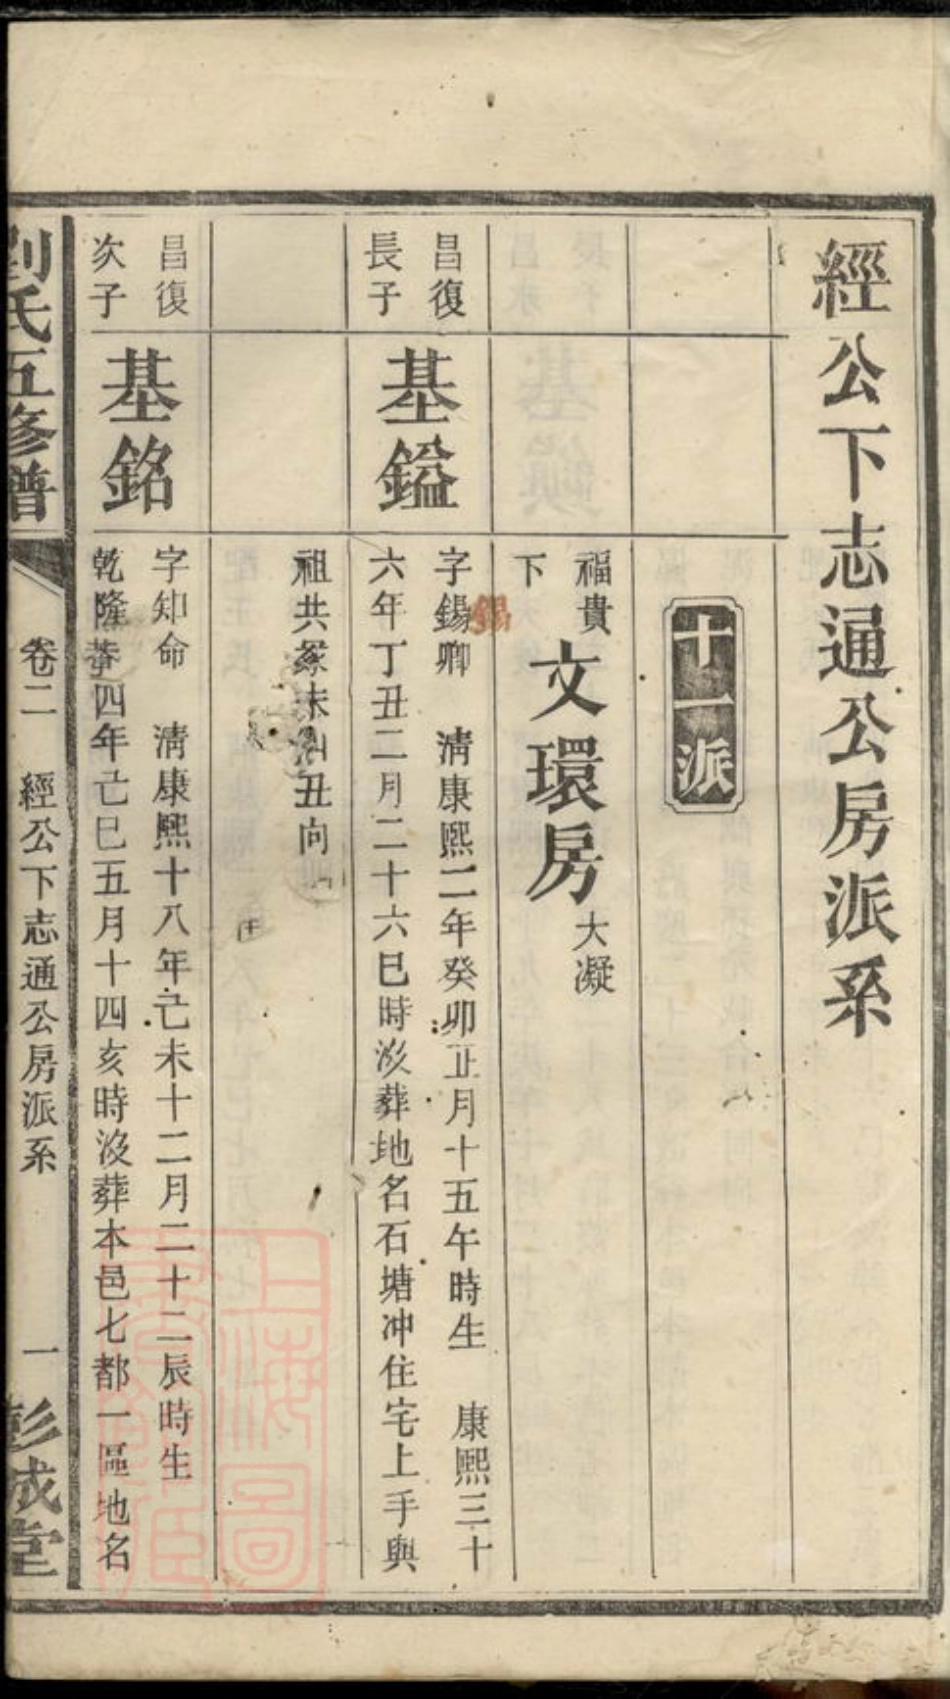 經公下志通公房派系
十一派
福貴
下
文環房
大凝
昌復
長子
基鎰
字錫卿 清康熙二年癸卯正月十五午時生 康熙三十
錫
六年丁丑二月二十六巳時歿葬地名石塘冲住宅上手與
祖共冢未山丑向
昌復
次子
基銘
字知命 清康熙十八年己未十二月二十二辰時生
乾隆十四年己巳五月十四亥時沒葬本邑七都一區地名
劉氏五修譜
卷二 經公下志通公房派系
一
彭城堂
上海圖書館藏